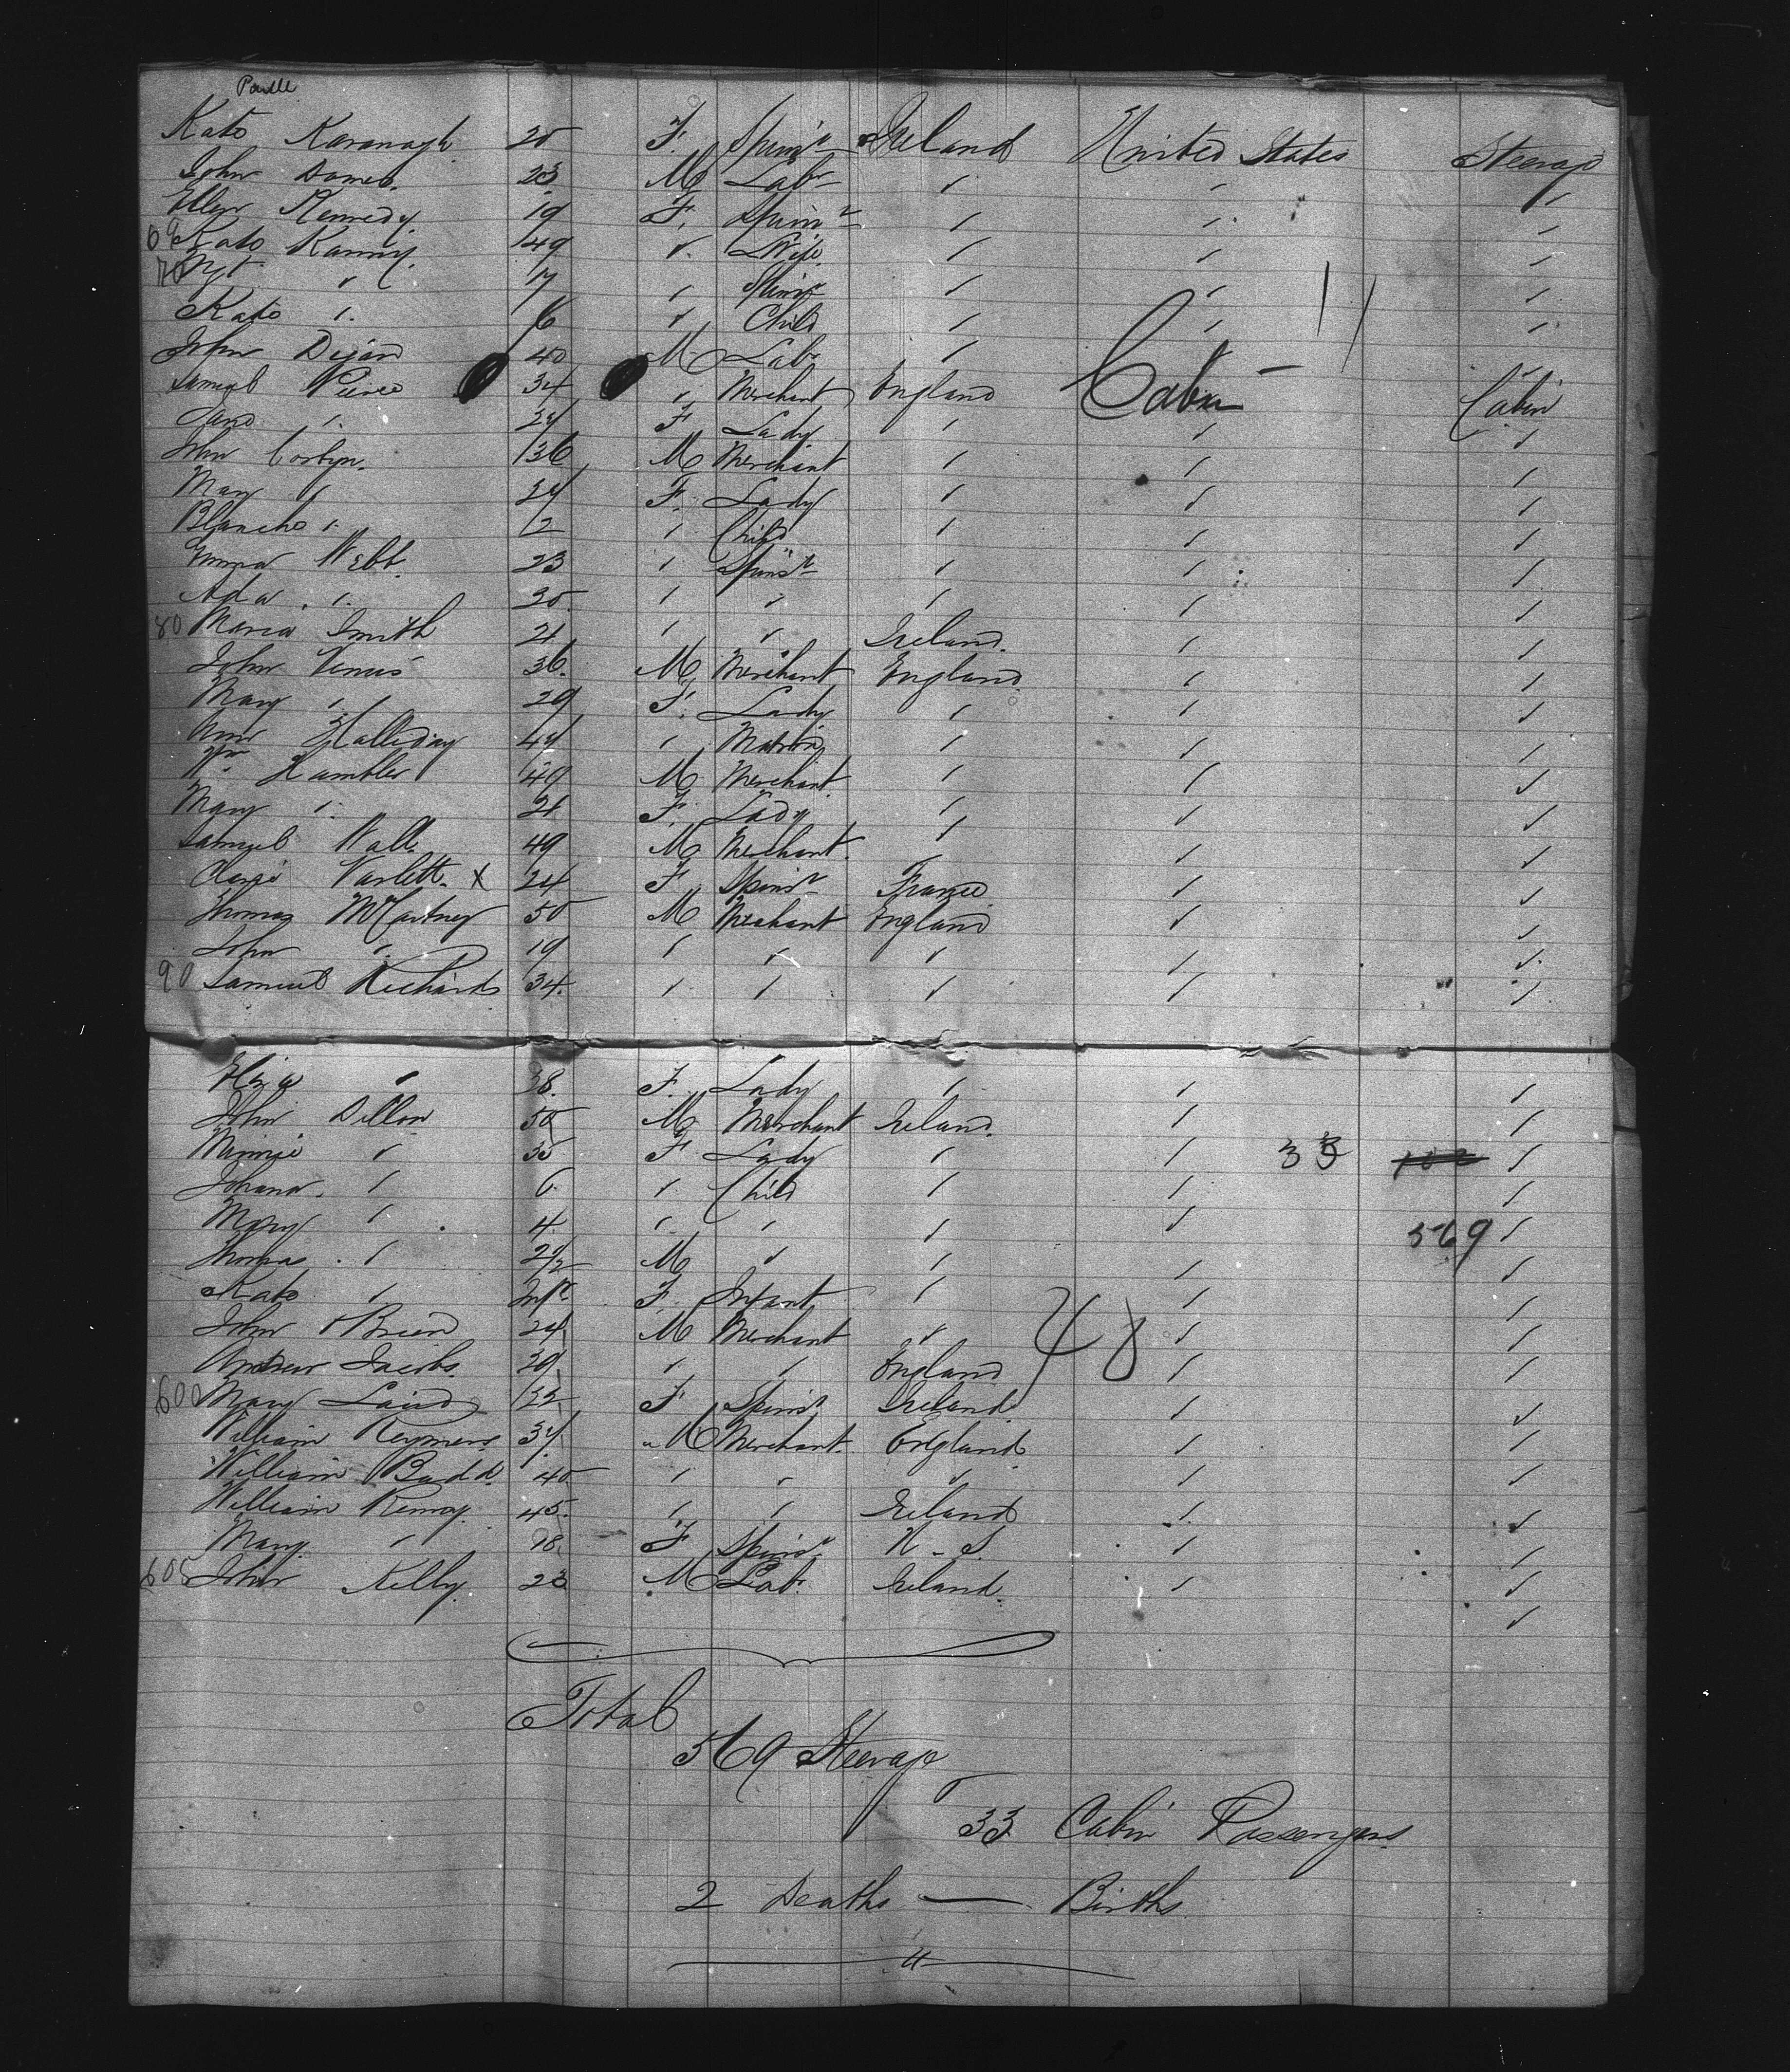 Kate Kavanagh 20 F. Spinr Ireland United States Steerage
John 23 M Labr ✓ ✓ ✓
Ellen Kennedy. 19 F. Spinr ✓ ✓ ✓
69 Kate 49 ✓ Wife ✓ ✓ ✓
70 Mgt ✓ 17 ✓ Spinr ✓ ✓ ✓
Kate ✓ 6 ✓ Child ✓ ✓ ✓
John 40 M Labr ✓ ✓
Samuel Pierce 34 ✓ Merchant England Cabin Cabin
Jane ✓ 24 F Lady ✓ ✓ ✓
John Corbyn. 36 M Merchant ✓ ✓ ✓
Mary ✓ 24 F. Lady ✓ ✓ ✓
Blanche ✓ 2 ✓ Child ✓ ✓ ✓
Emma Webb. 23 ✓ Spinsr ✓ ✓ ✓
Ada ✓ 20 ✓ ✓ ✓ ✓ ✓
80 Maria Smith 21 ✓ ✓ Ireland. ✓ ✓
John Venus 36. M Merchant England ✓ ✓
Mary ✓ 29 F. Lady ✓ ✓ ✓
Ann Halliday 44 ✓ Matron ✓ ✓ ✓
Wm Hambler 49 M Merchant. ✓ ✓ ✓
Mary ✓ 21 F. Lady ✓ ✓ ✓
Samuel 49 M Merchant. ✓ ✓ ✓
Varlett. X 24 F Spinsr France ✓ ✓
Thomas McCartney 50 M Merchant England ✓ ✓
John ✓ 19 ✓ ✓ ✓ ✓ ✓
90 Samuel Richards 34. ✓ ✓ ✓ ✓ ✓
Eliza ✓ 38. F. Lady ✓ ✓ ✓
John Dillon 50 M Merchant Ireland. ✓ ✓
Minnie ✓ 35 F Lady ✓ ✓ 33 ✓
Johana. ✓ 6 ✓ Child ✓ ✓ ✓
Mary ✓ 4 ✓ ✓ ✓ ✓ 569 ✓
Thomas ✓ 2/2 M ✓ ✓ ✓ ✓
Kate ✓ Inft F. Infant ✓ ✓ ✓
John OBrien 24 M Merchant ✓ 48 ✓ ✓
Andrew Jacobs. 29. ✓ ✓ England ✓ ✓
600 Mary Laird 22 F Spinsr Ireland ✓ ✓
William 34 M Merchant. England ✓ ✓
William Budd. 40 ✓ ✓ ✓ ✓ ✓
William 45. ✓ ✓ Ireland ✓ ✓
Mary. ✓ 18. F Spinsr U.S. ✓ ✓
605 John Kelly. 23 M Labr. Ireland. ✓ ✓
Total
569 Steerage
33 Cabin Passengers
2 Deaths — Births